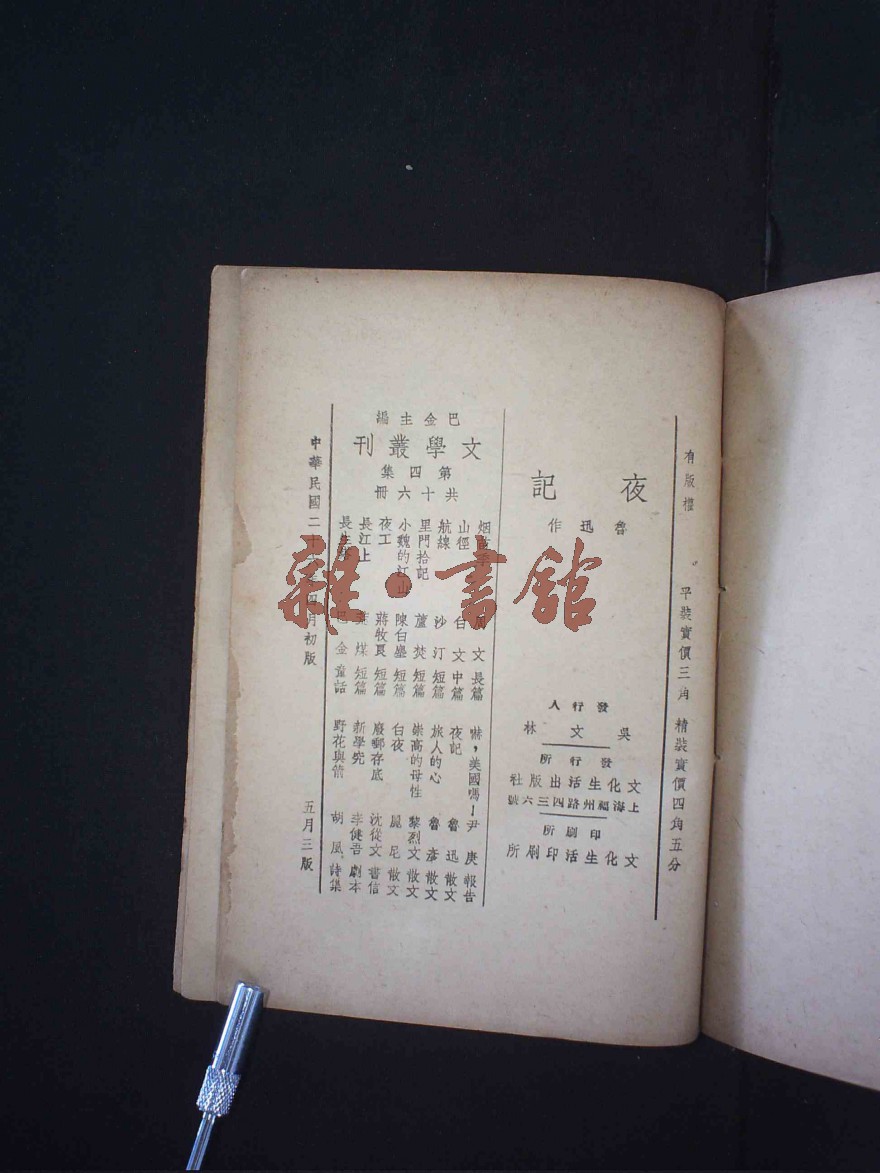 有版權 平裝實價三角 精裝實價四角五分
夜記
魯迅作
發行人
吳文林
發行所
文化生活出版社
上海福州路四三六號
印刷所
文化生活印刷所
巴金主編
文學叢刊
第四集
共十六冊
周文 長篇
山徑 白文 中篇
航線 沙汀 短篇
里門拾記 蘆焚 短篇
小魏的江山 陳白塵 短篇
夜工 蔣牧良 短篇
長江上 煤 短篇
長生 巴金 童話
嚇，美國嗎！ 尹庚 報告
夜記 魯迅 散文
旅人的心 魯彥 散文
崇高的母性 黎烈文 散文
白夜 麗尼 散文
廢郵存底 沈從文 書信
新學究 李健吾 劇本
野花與箭 胡風 詩集
中華民國二十 年四月初版 五月三版
雜·書館